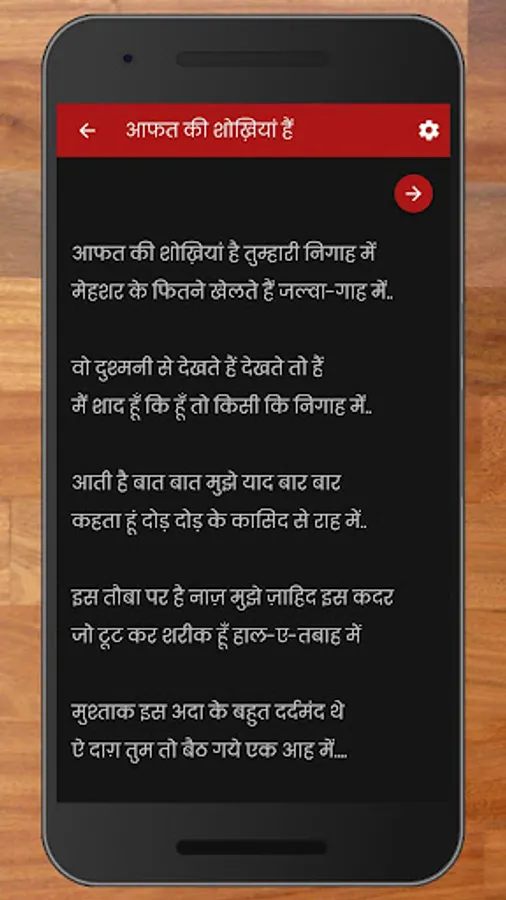 आफत की शोख़ियां हैं
आफत की शोख़ियां है तुम्हारी निगाह में
मेहशर के फितने खेलते हैं जल्वा-गाह में..
वो दुश्मनी से देखते हैं देखते तो हैं
मैं शाद हूँ कि हूँ तो किसी कि निगाह में..
आती है बात बात मुझे याद बार बार
कहता हूं दोड़ दोड़ के कासिद से राह में..
इस तौबा पर है नाज़ मुझे ज़ाहिद इस कदर
जो टूट कर शरीक हूँ हाल-ए-तबाह में
मुश्ताक इस अदा के बहुत दर्दमंद थे
ऐ दाग़ तुम तो बैठ गये एक आह में....